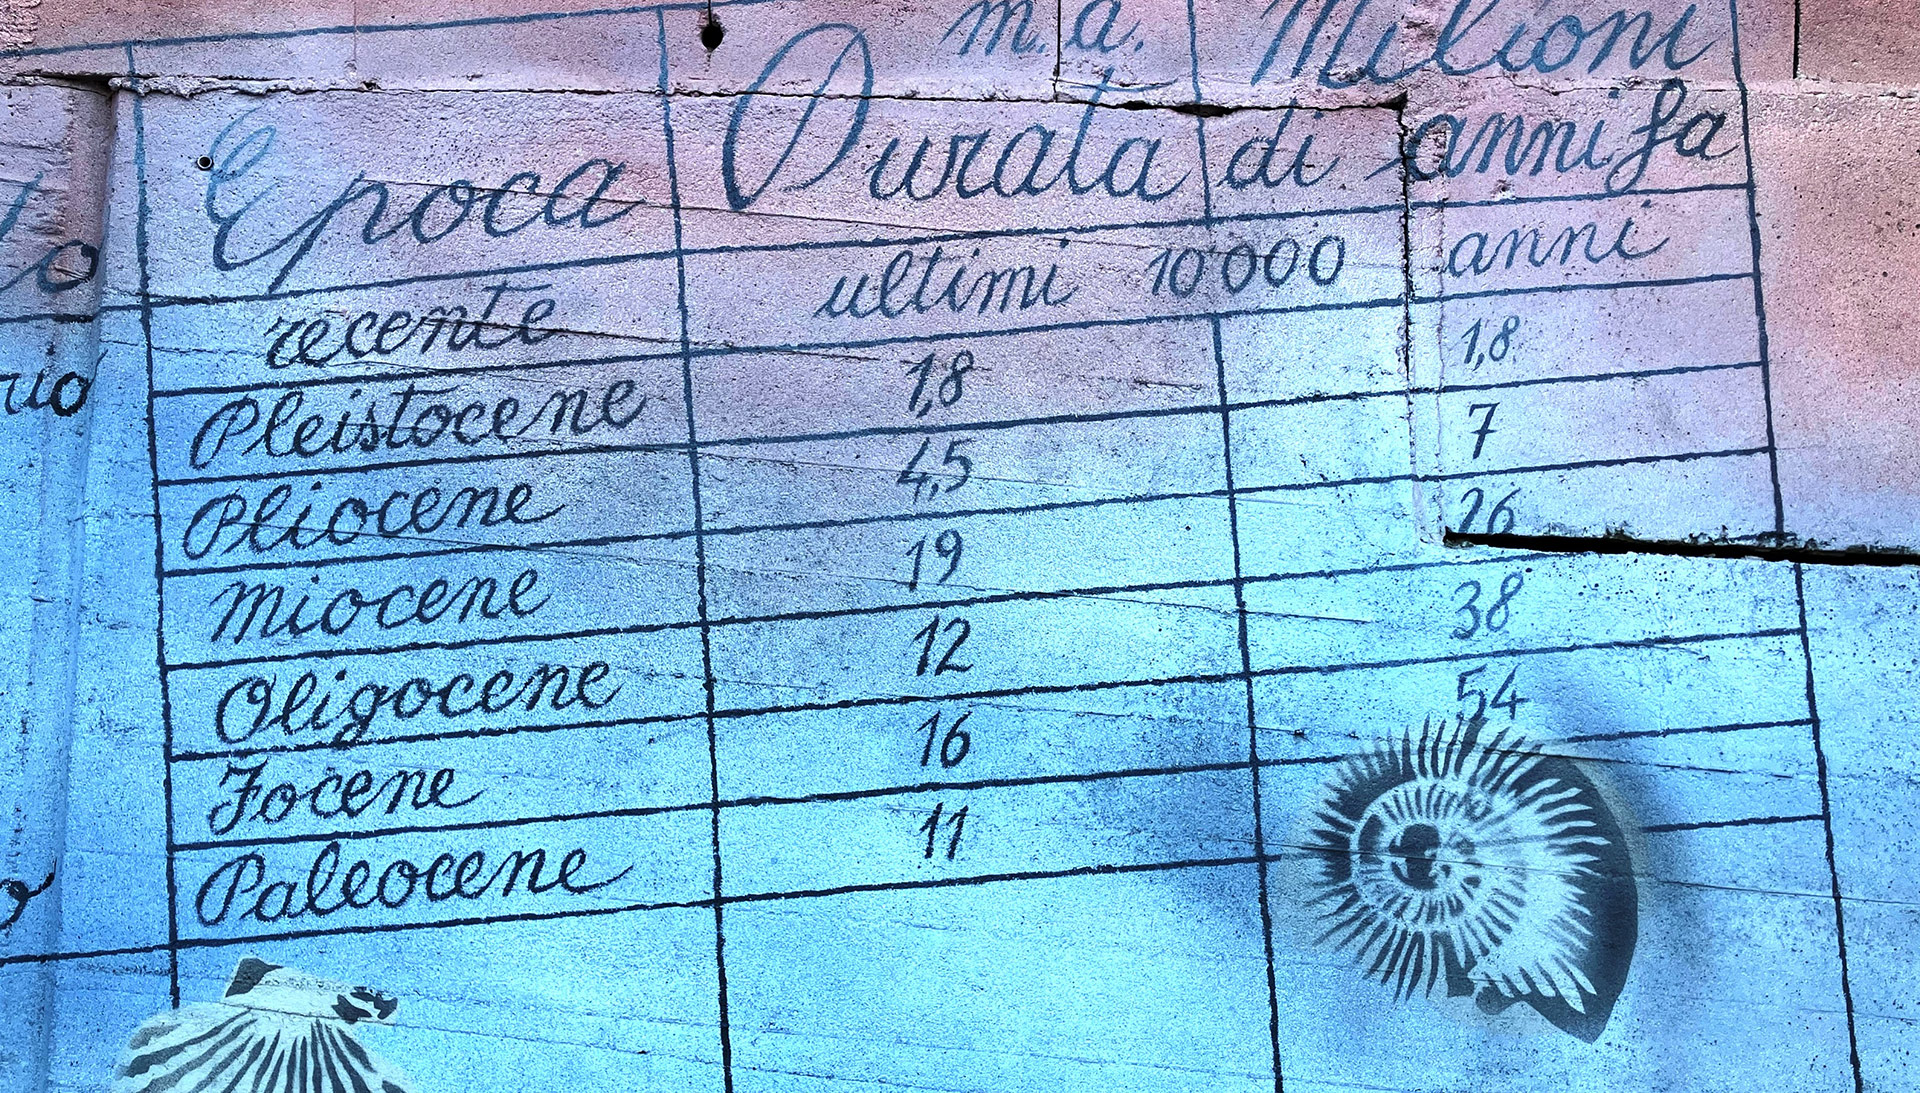 m.a. Milioni
Epoca Durata di anni fa
recente ultimi 10000 anni
Pleistocene 1,8 1,8
Pliocene 4,5 7
Miocene 19 26
Oligocene 12 38
Eocene 16 54
Paleocene 11